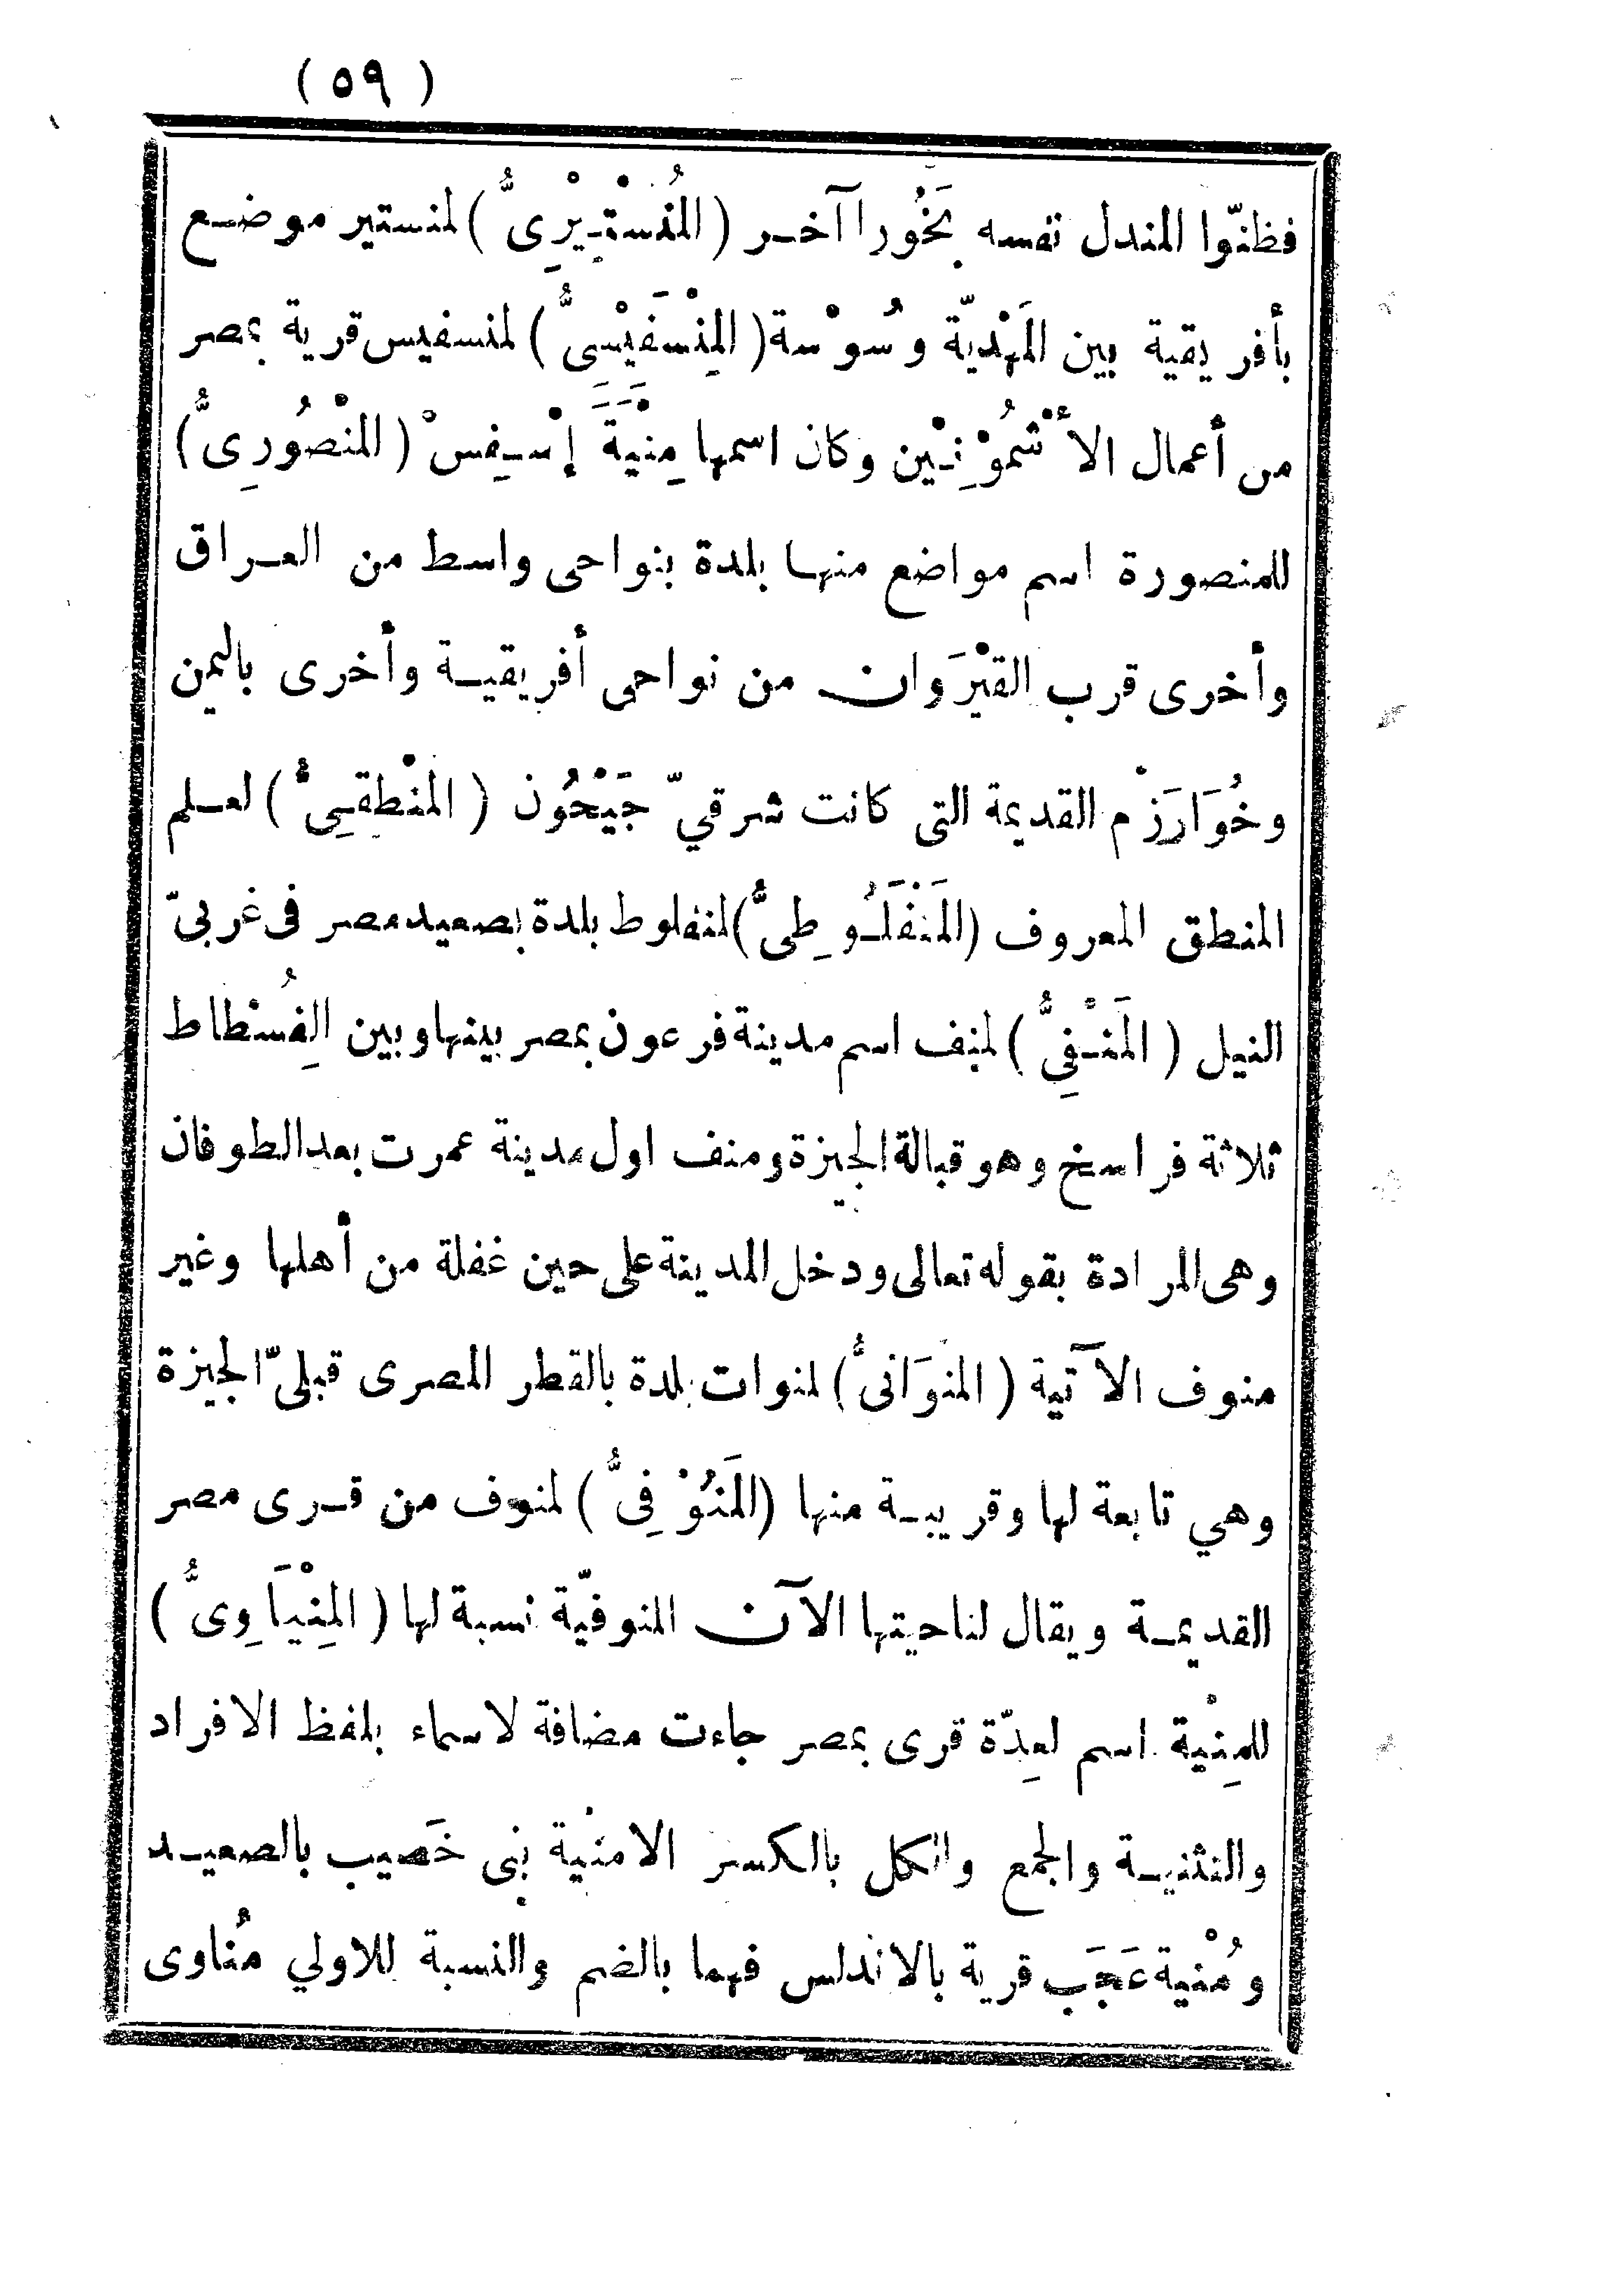 ( ٥٩ )
فظنّوا المندل نفسه بَخُورا آخر ( المُنسْتِيْرِىُّ ) لمنستير موضع
بأفريقية بين المَهْديّة وسُوْسة ( المِنْسَفِيْسىُّ ) لمنسفيس قرية بمصر
من أعمال الأشْمُوْنِيْن وكان اسمها مِنْيَةَ إسْفِسْ ( المنْصُورِىُّ )
للمنصورة اسم مواضع منها بلدة بنواحى واسط من العراق
وأخرى قرب القيْرَوان من نواحى أفريقية وأخرى باليمن
وخُوَارَزْم القديمة التى كانت شرقيّ جَيْحُون ( المنْطِقىُّ ) لعلم
المنطق المعروف (المَنفَلُوطِىُّ) لمنفلوط بلدة بصعيد مصر فى غربىّ
النيل ( المَنْفِىُّ ) لمنف اسم مدينة فرعون بمصر بينها وبين الفِسُطاط
ثلاثة فراسخ وهو قبالة الجيزة ومنف اول مدينة عمرت بعد الطوفان
وهى المرادة بقوله تعالى ودخل المدينة على حين غفلة من أهلها وغير
منوف الآتية ( المنوَاتىُّ ) لمنوات بلدة بالقطر المصرى قبلىّ الجيزة
وهي تابعة لها وقريبة منها (المَنُوْفِىُّ ) لمنوف من قرى مصر
القديمة ويقال لناحيتها الآن المنوفيّة نسبة لها ( المِنْيَاوِىُّ )
للمِنْية اسم لعِدّة قرى بمصر جاءت مضافة لاسماء بلفظ الافراد
والتثنية والجمع والكل بالكسر الا منْية بنى خَصيب بالصعيد
ومُنْية عَجَب قرية بالاندلس فهما بالضم والنسبة للاولي مُناوى